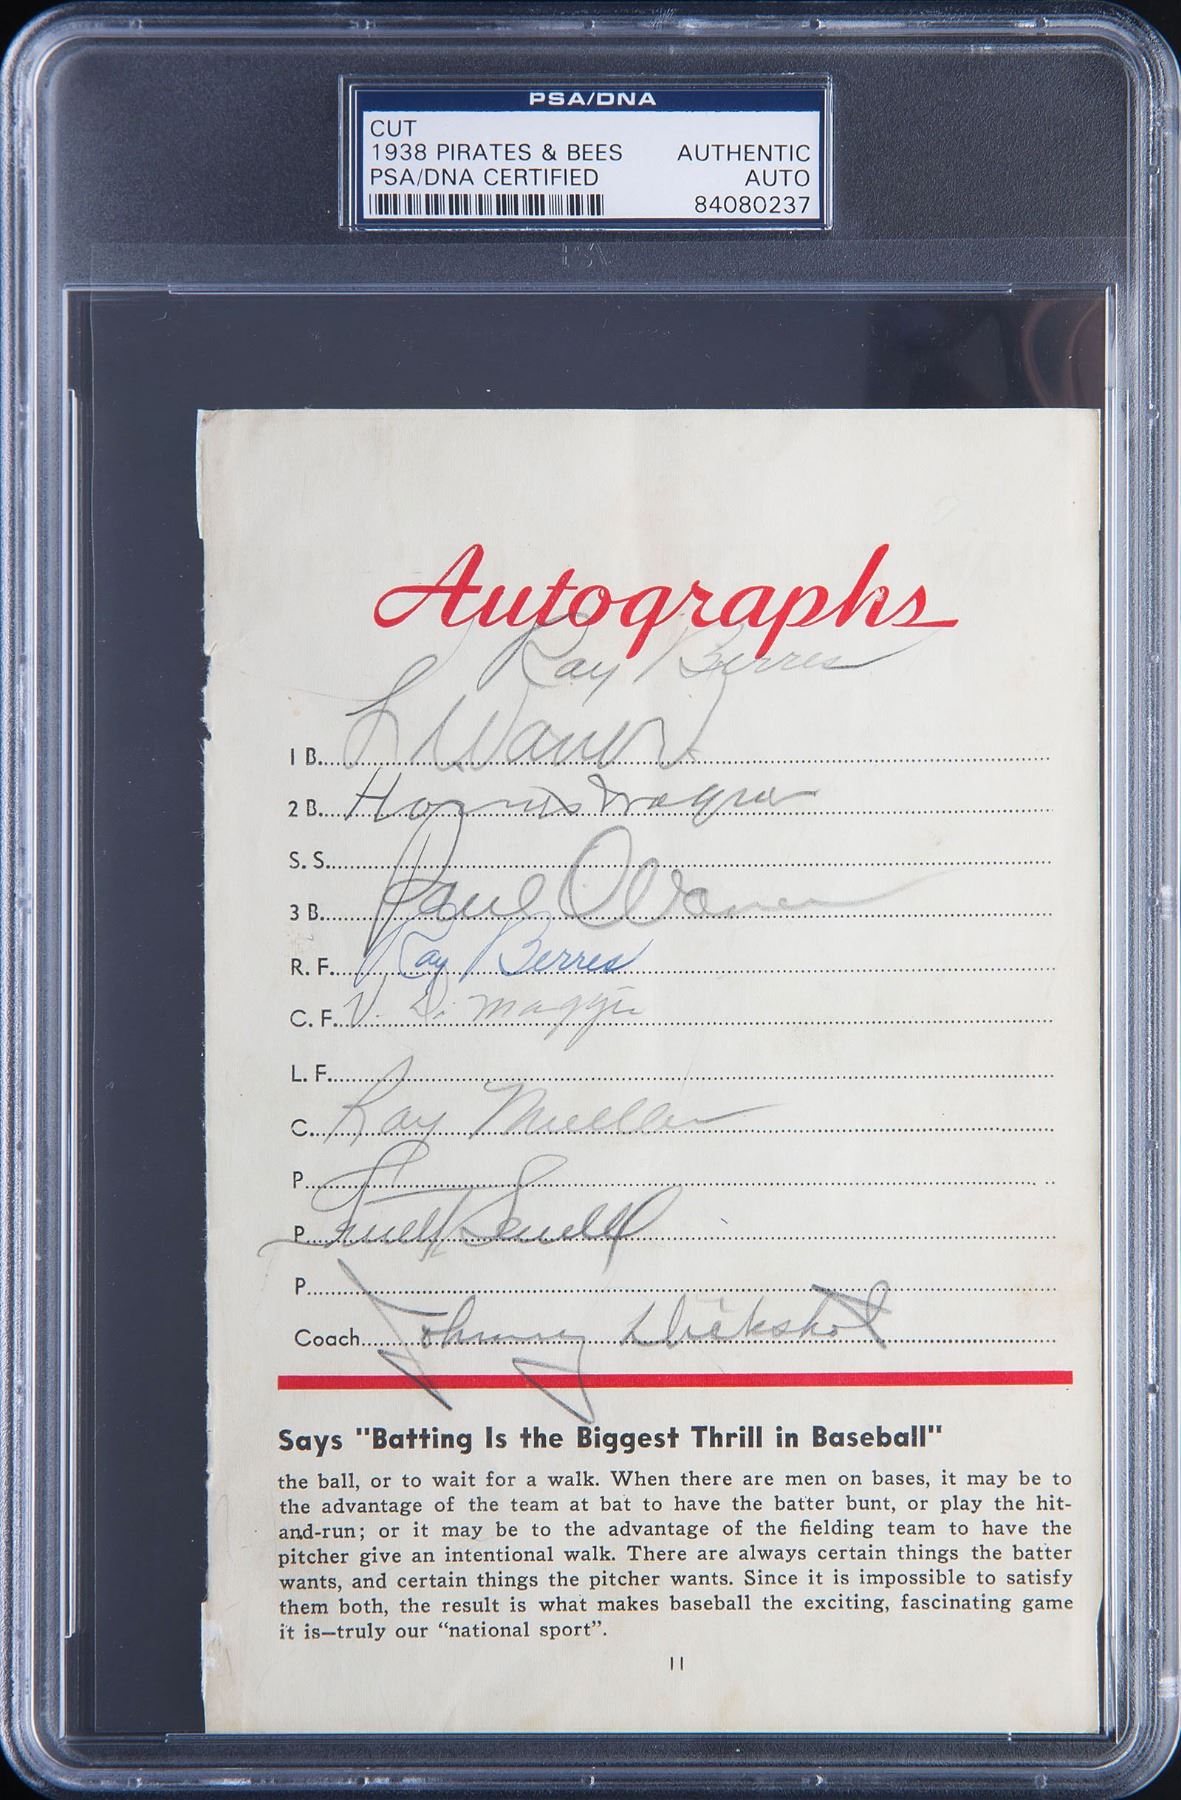 PSA/DNA
CUT
1938 PIRATES & BEES AUTHENTIC
PSA/DNA CERTIFIED AUTO
84080237
Autographs
Ray Berres
1 B. L Waner
2 B. Honus Wagner
S. S.
3 B. Paul Waner
R. F. Ray Berres
C. F. V. Di Maggio
L. F.
C. Ray Mueller
P.
P. Truett Sewell
P.
Coach Johnny Dickshot
Says "Batting Is the Biggest Thrill in Baseball"
the ball, or to wait for a walk. When there are men on bases, it may be to
the advantage of the team at bat to have the batter bunt, or play the hit-
and-run; or it may be to the advantage of the fielding team to have the
pitcher give an intentional walk. There are always certain things the batter
wants, and certain things the pitcher wants. Since it is impossible to satisfy
them both, the result is what makes baseball the exciting, fascinating game
it is—truly our “national sport”.
11